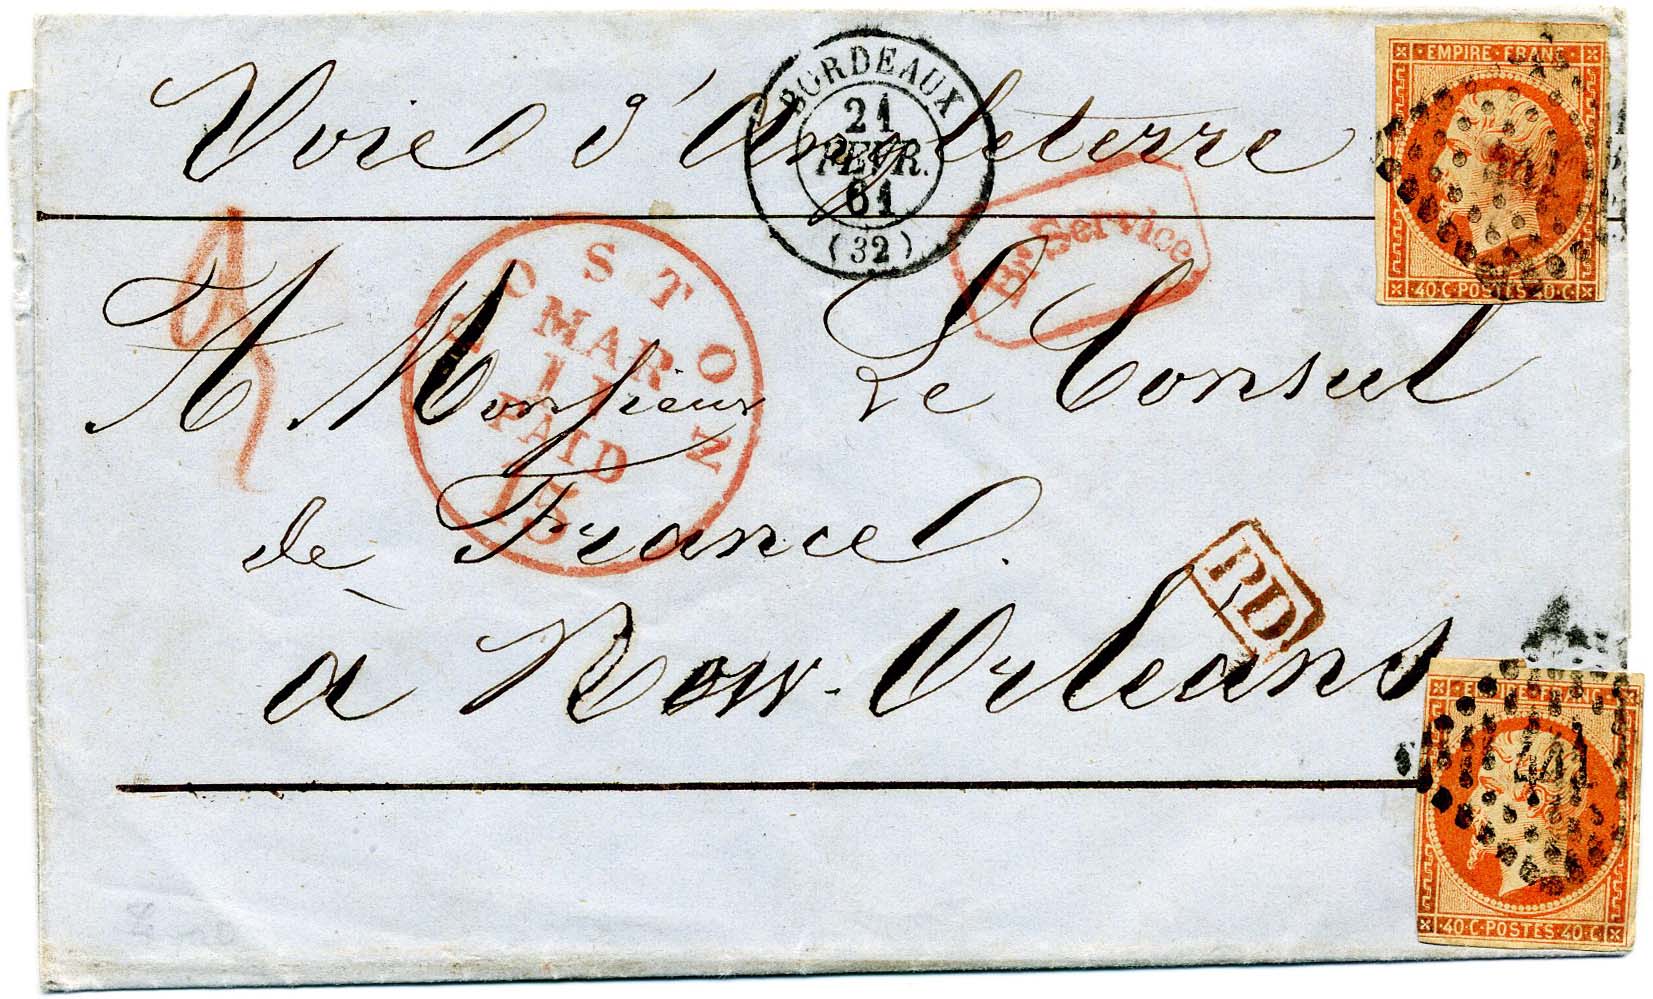 Voie d'Angleterre
BORDEAUX
21
FEVR.
61
(32)
EMPIRE · FRANC ·
· 40 · C · POSTES · 40 · C ·
Br Service
BOSTON
MAR
PAID
15
A Monsieur Le Consul
de France.
à New-Orleans
PD
EMPIRE · FRANC ·
441
· 40 · C · POSTES · 40 · C ·